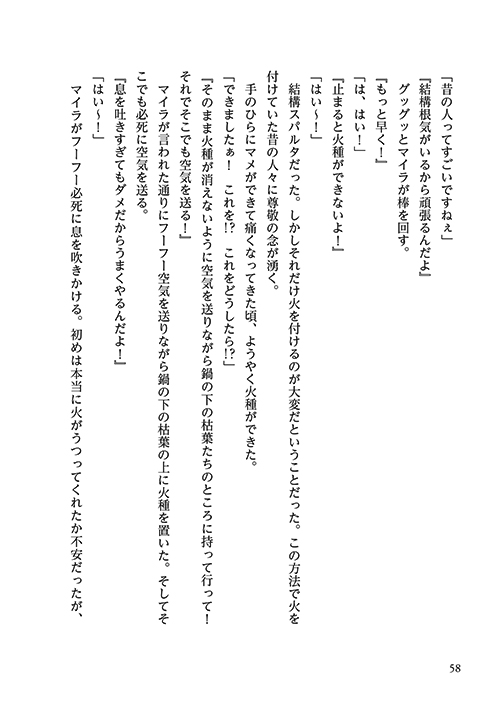 「昔の人ってすごいですねぇ」
『結構根気がいるから頑張るんだよ』
　グッグッとマイラが棒を回す。
『もっと早く！』
「は、はい！」
『止まると火種ができないよ！』
「はい～！」
　結構スパルタだった。しかしそれだけ火を付けるのが大変だということだった。この方法で火を
付けていた昔の人々に尊敬の念が湧く。
　手のひらにマメができて痛くなってきた頃、ようやく火種ができた。
「できましたぁ！　これを!?　これをどうしたら!?」
『そのまま火種が消えないように空気を送りながら鍋の下の枯葉たちのところに持って行って！
それでそこでも空気を送る！』
　マイラが言われた通りにフーフー空気を送りながら鍋の下の枯葉の上に火種を置いた。そしてそ
こでも必死に空気を送る。
『息を吐きすぎてもダメだからうまくやるんだよ！』
「はい～！」
　マイラがフーフー必死に息を吹きかける。初めは本当に火がうつってくれたか不安だったが、
58